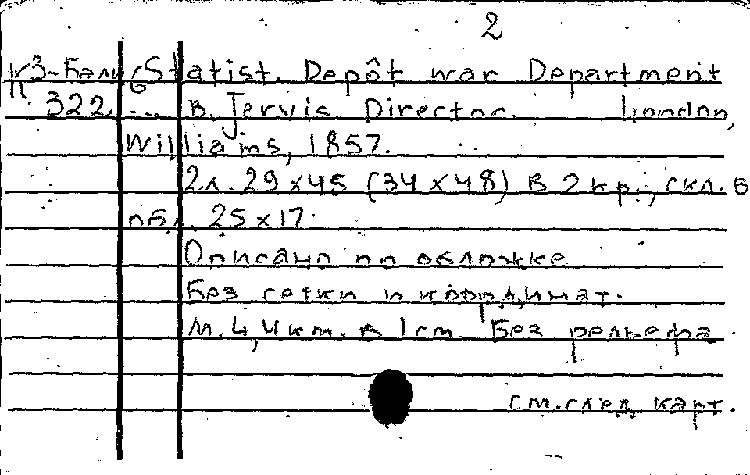 2
К3-Бал/6 Statist. Depôt war Department
322. ... B. Jervis Director. London,
Williams, 1857.
2 л. 29 x 45 (34 x 48) в 2 кр., скл. в
обл. 25 x 17.
Описано по обложке
Без сетки и координат.
М. 4,4 км. в 1 см Без рельефа
см. след. карт.